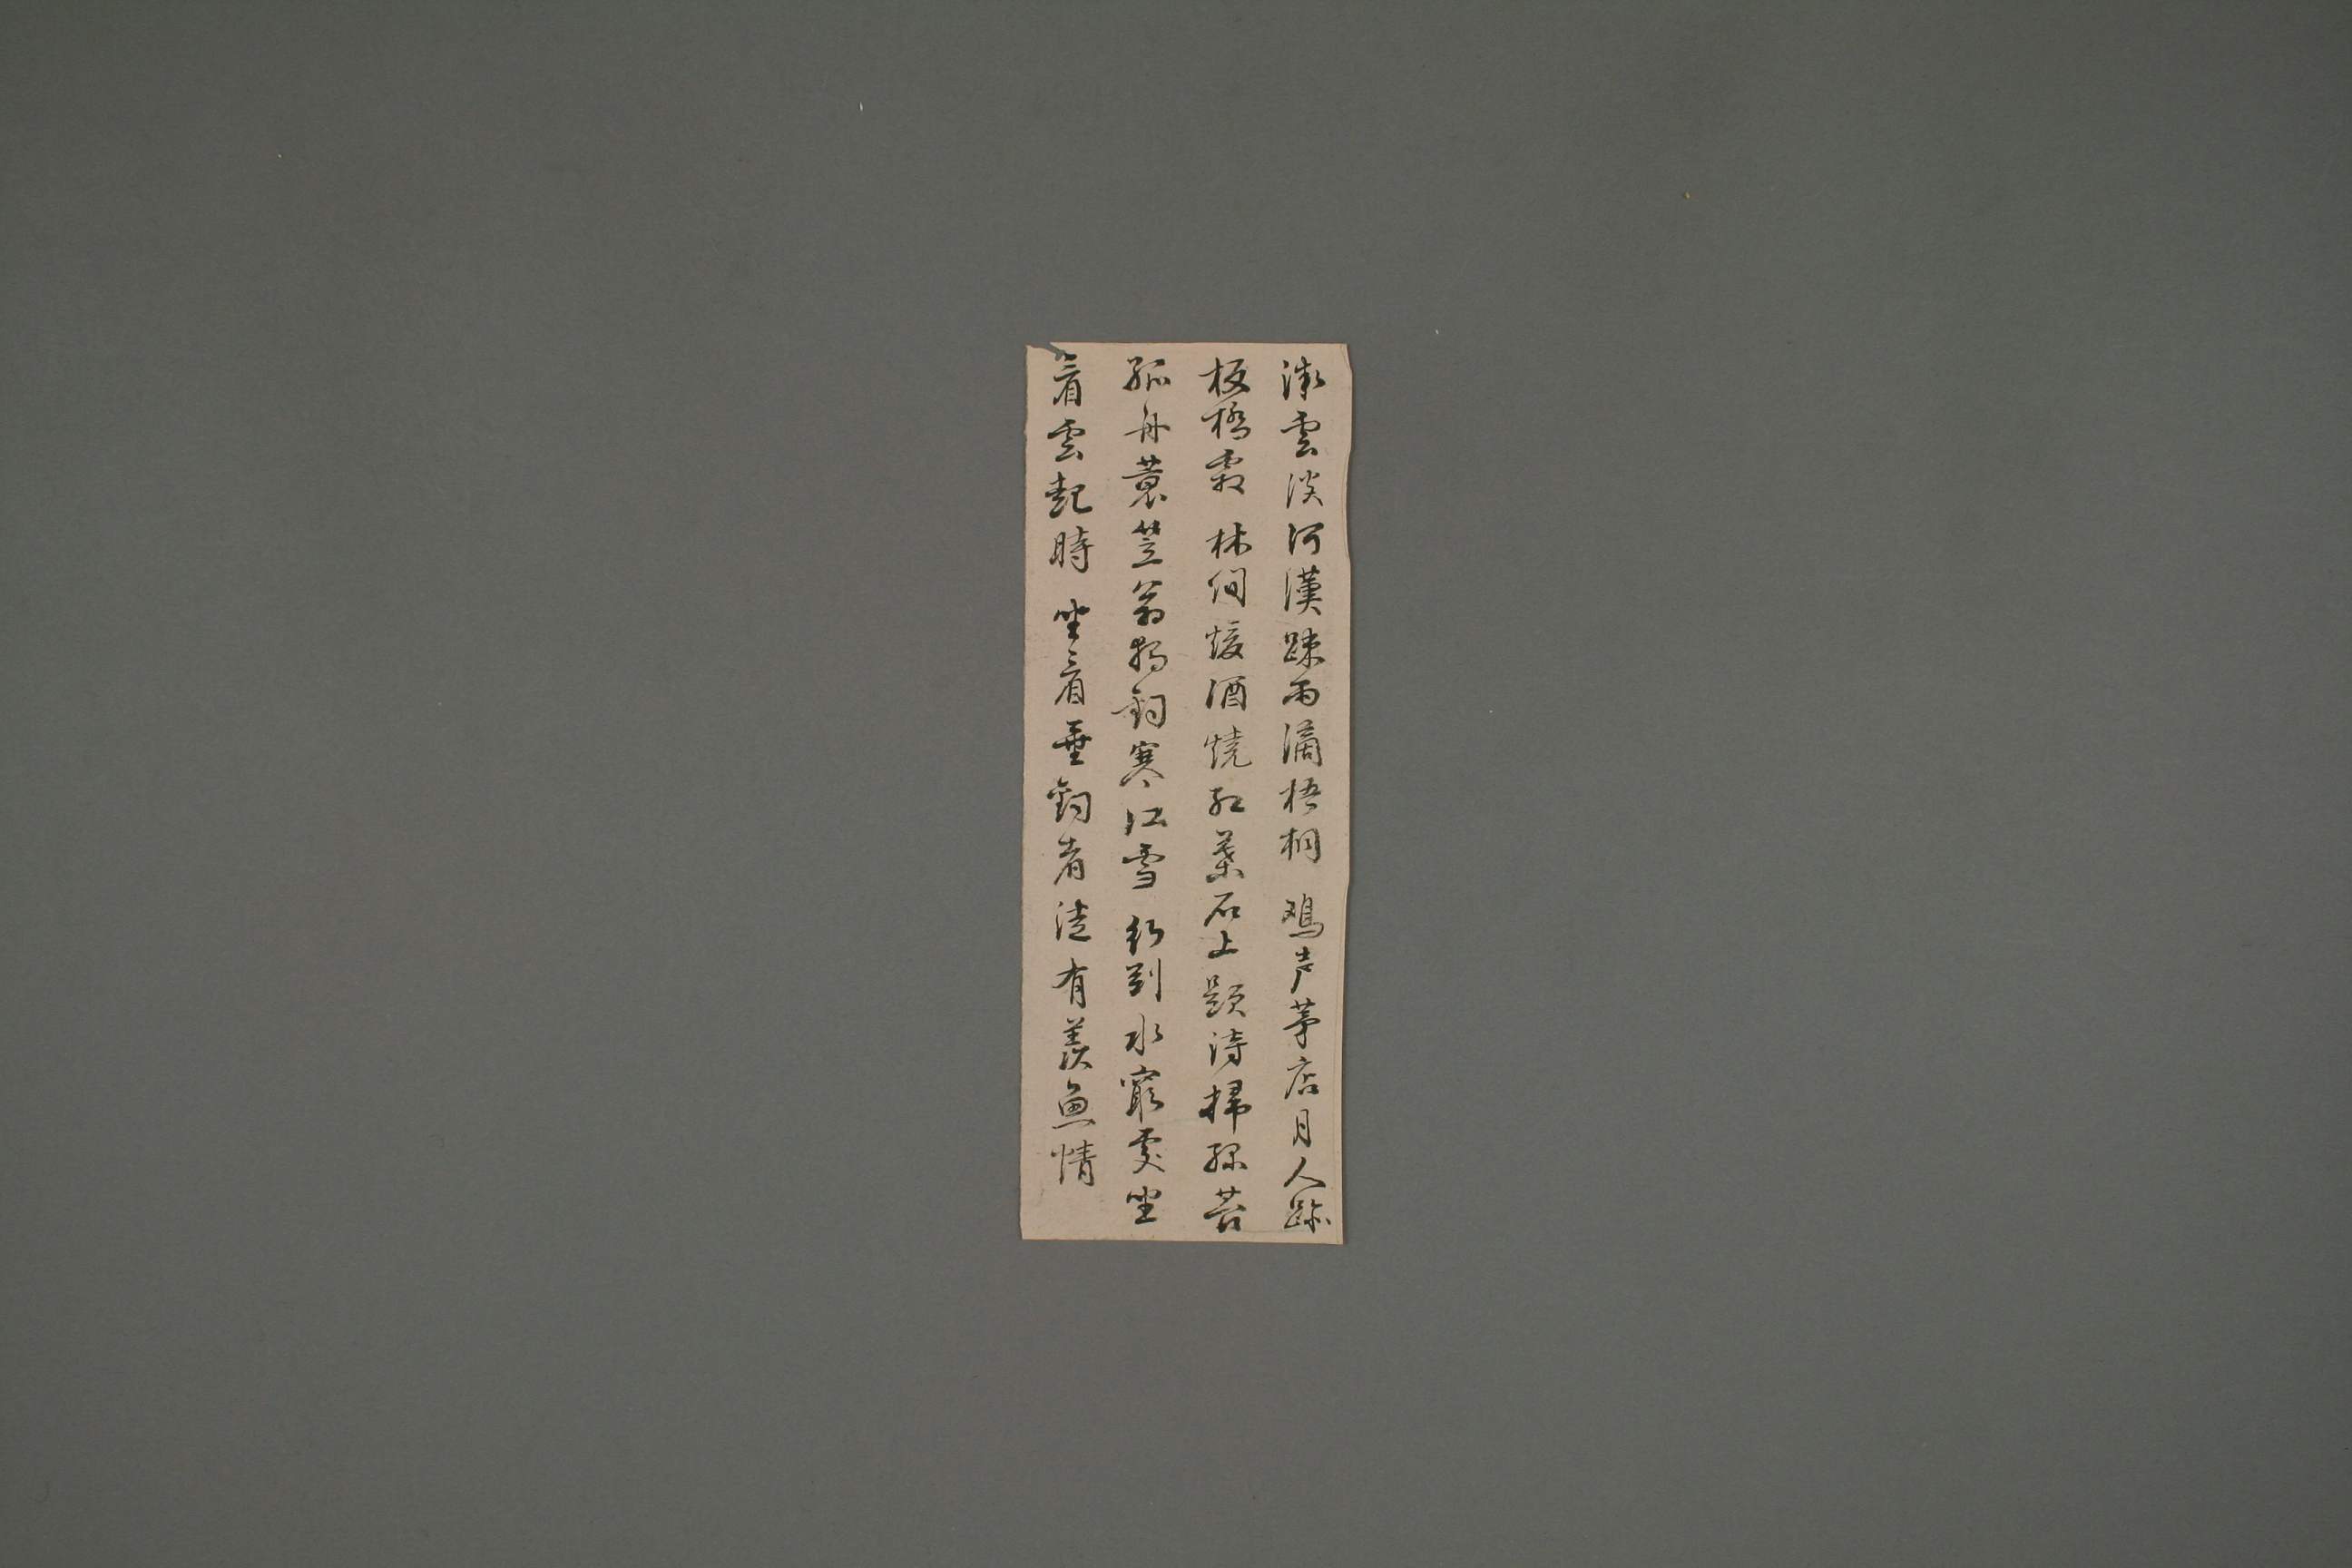 微雲淡河漢踈雨滴梧桐 鳮声茅店月人跡
板橋霜 林间煖酒燒紅葉石上題詩掃緑苔
孤舟蓑笠翁獨釣寒江雪 行到水窮處坐
看雲起時 坐看垂釣者徒有羨魚情